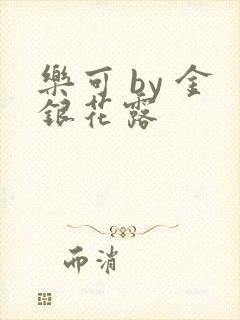 樂可 by 金
銀花露
而消